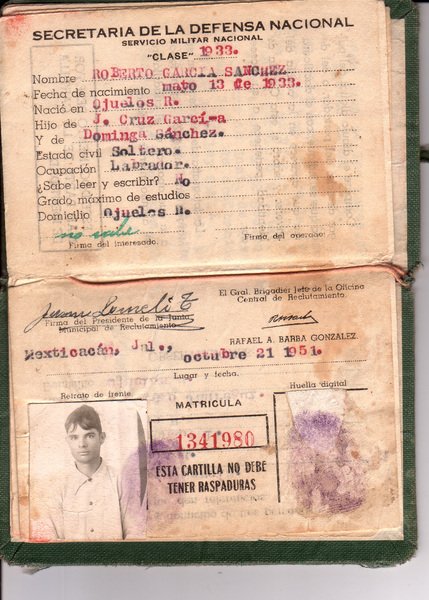 SECRETARIA DE LA DEFENSA NACIONAL
SERVICIO MILITAR NACIONAL
"CLASE" 1933.
Nombre ROBERTO GARCIA SANCHEZ
Fecha de nacimiento mayo 13 de 1933.
Nació en Ojuelos R.
Hijo de J. Cruz García
Y de Dominga Sánchez.
Estado civil Soltero.
Ocupación Labrador.
¿Sabe leer y escribir? No
Grado máximo de estudios
Domicilio Ojuelos R.
no sabe
Firma del interesado. Firma del operado.
El Gral. Brigadier Jefe de la Oficina
Central de Reclutamiento.
Firma del Presidente de la Junta
Municipal de Reclutamiento
RAFAEL A. BARBA GONZALEZ.
Mexticacán, Jal., octubre 21 1951.
Lugar y fecha.
Retrato de frente
MATRICULA
Huella digital
1341980
ESTA CARTILLA NO DEBE
TENER RASPADURAS